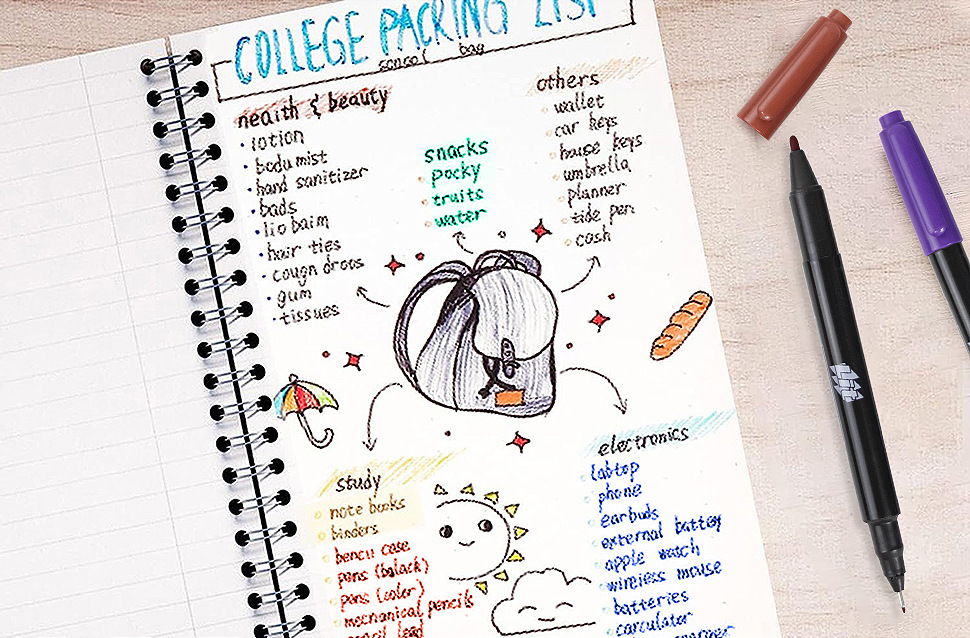 COLLEGE PACKING LIST
bag
neaith & beauty
lotion
body mist
hand sanitizer
bads
lio baim
hair ties
cougn drops
gum
tissues
snacks
pocky
truits
water
others
wallet
car keys
house keys
umbrella
planner
tide pen
cash
study
note books
binders
bencii case
pens (balack)
pens (color)
mecnanical pencils
lead
electronics
labtop
phone
earbuds
external battey
apple watch
wireiess mouse
batteries
carculater